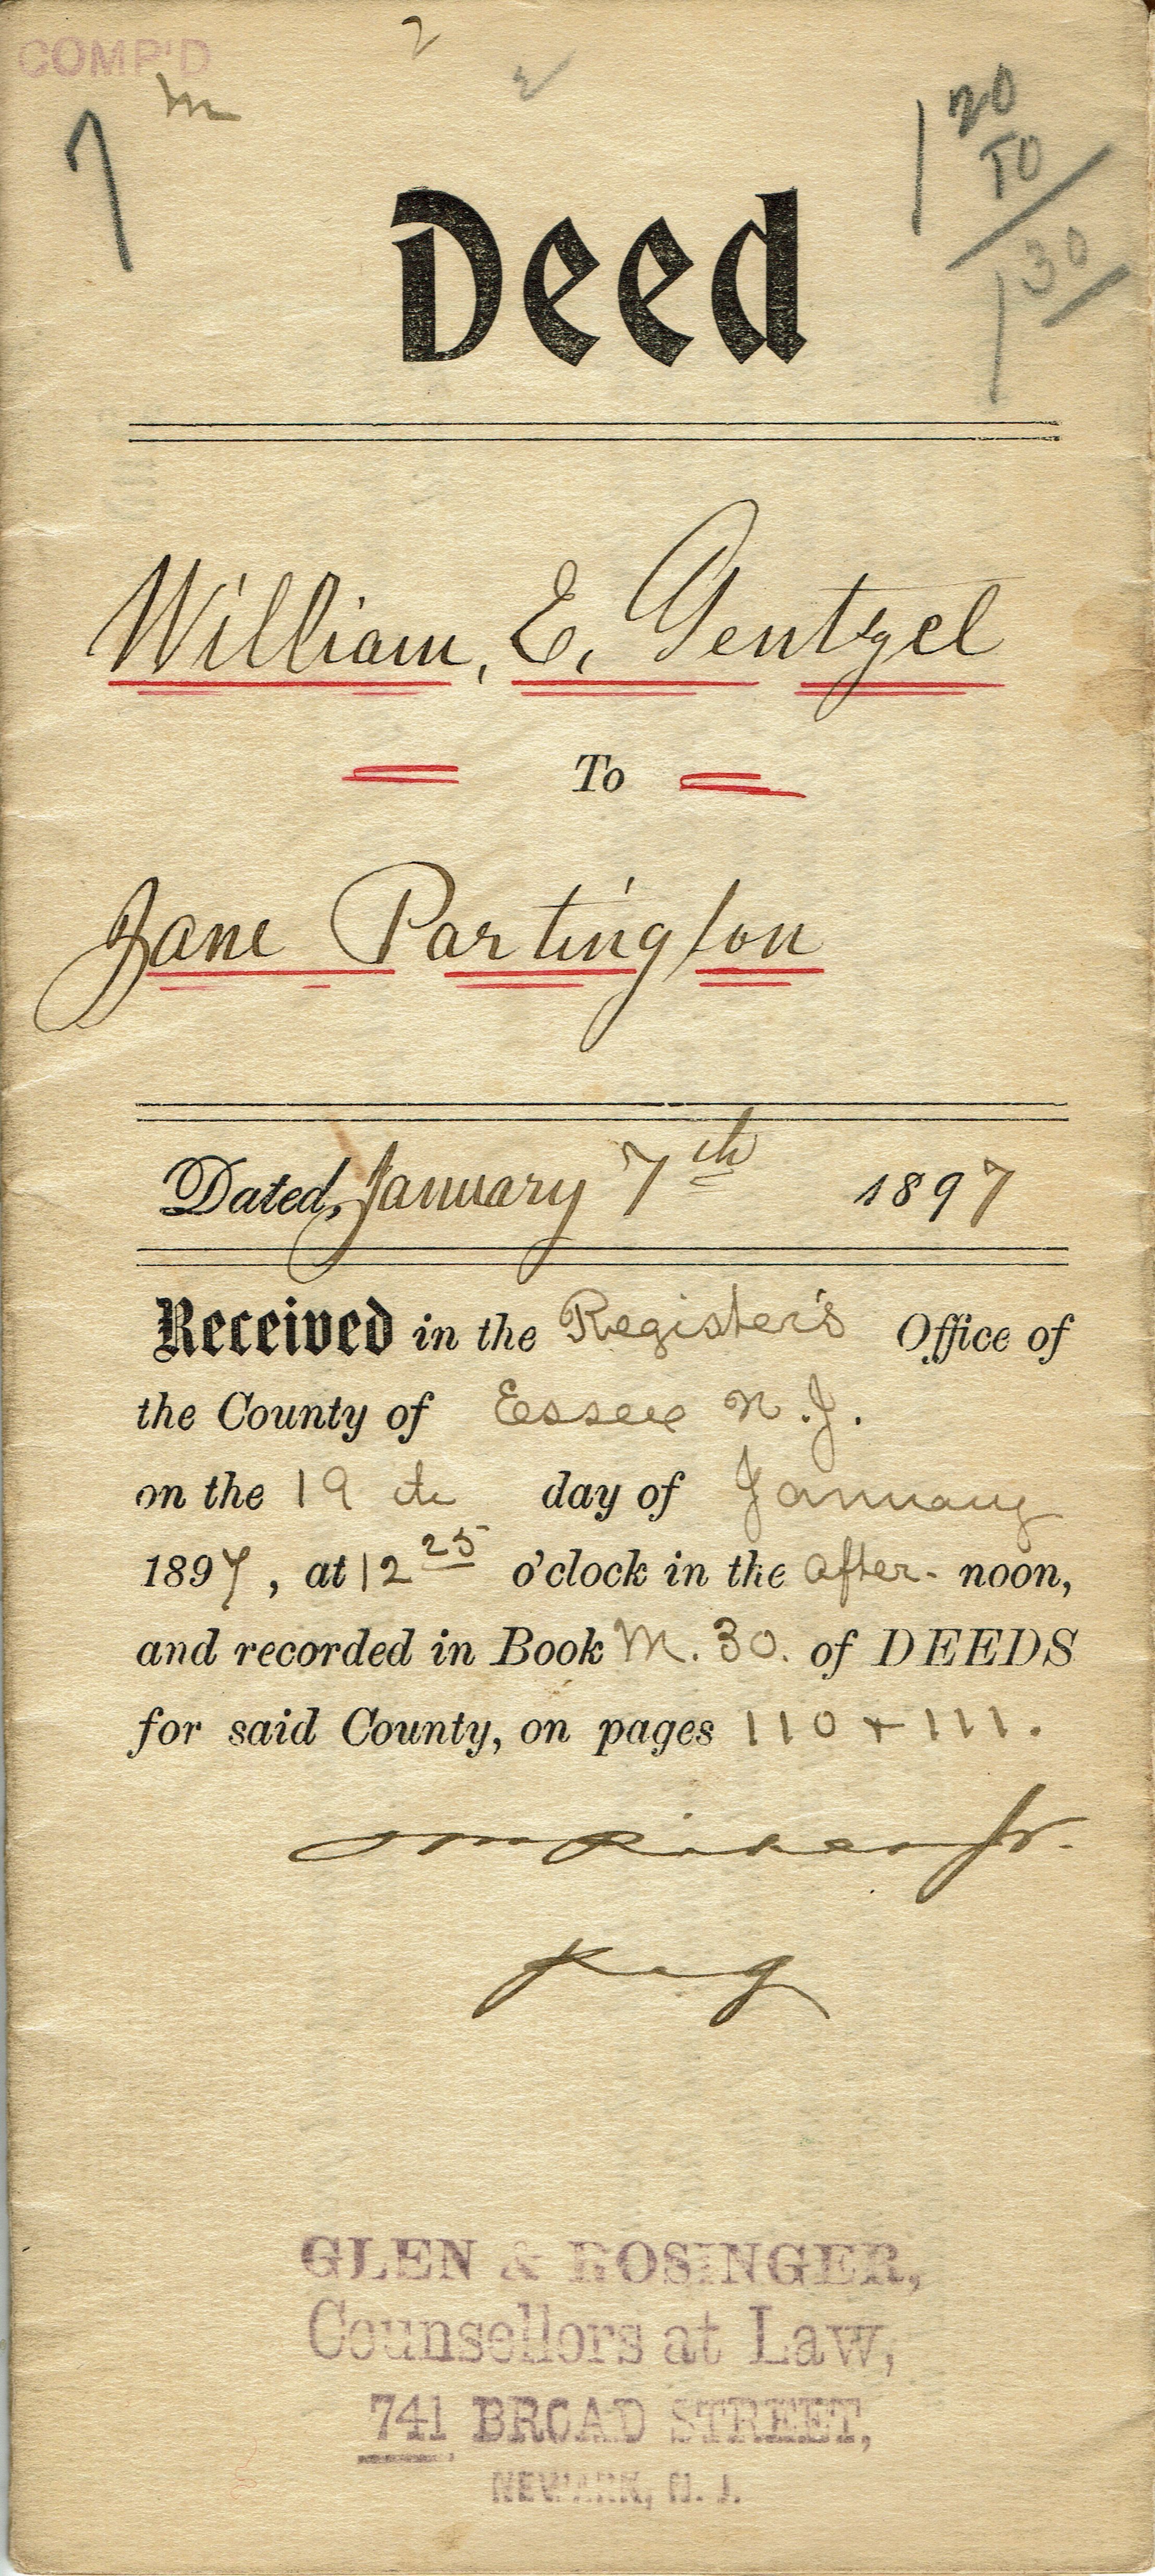 COMP'D
2
m
7
1 20
10
1 30
Deed
William, E, Gentzel
To
Jane Partington
Dated, January 7th 1897
Received in the Register's Office of
the County of Essex N.J.
on the 19 th day of January
1897, at 12 25 o'clock in the after- noon,
and recorded in Book M. 30. of DEEDS
for said County, on pages 110 + 111.
Jr.
Reg
GLEN & ROSINGER,
Counsellors at Law,
741 BROAD STREET,
NEWARK, N. J.